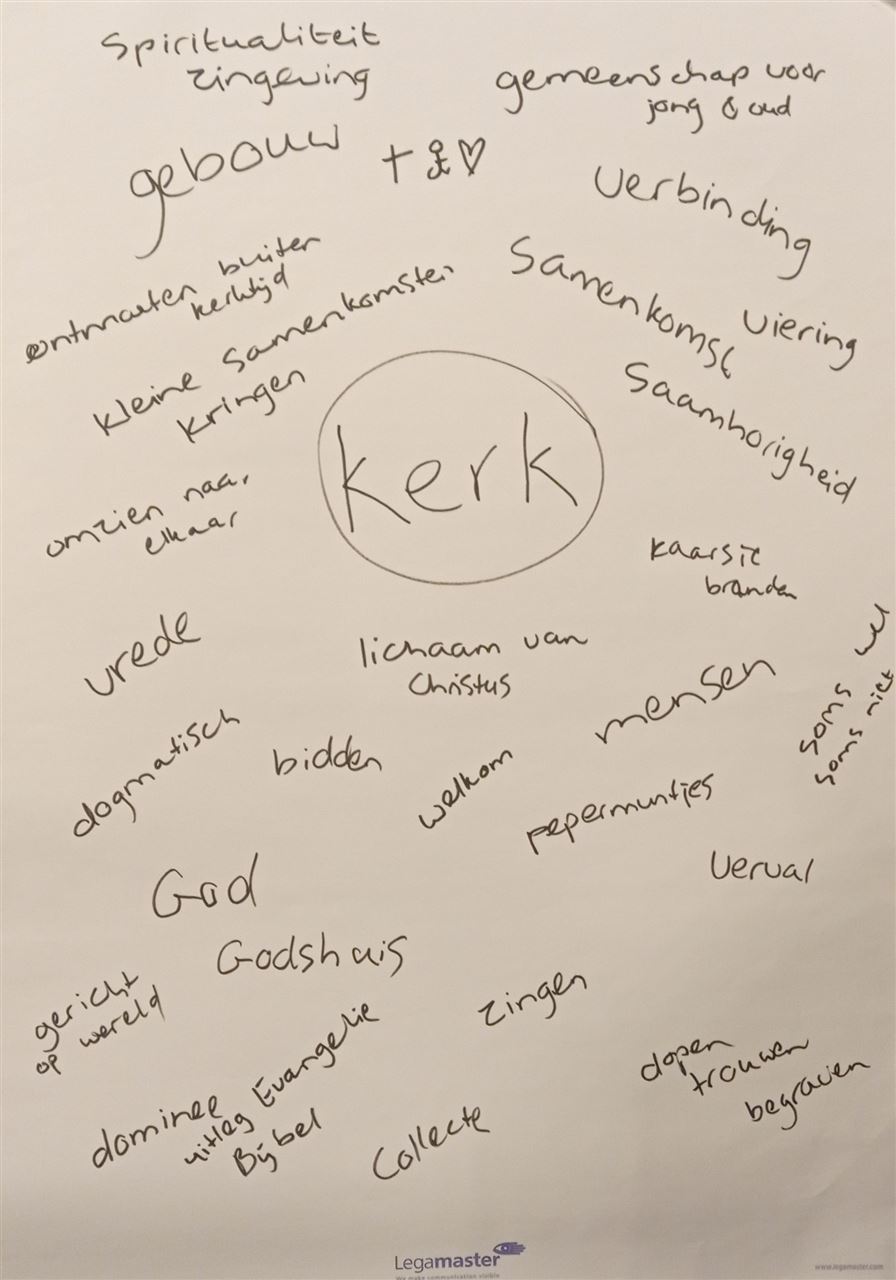 Spiritualiteit
zingeving
gemeenschap voor
jong & oud
gebouw
verbinding
ontmoeten buiten
kerktijd
kleine samenkomsten
kringen
Samenkomst
viering
Saamhorigheid
kerk
omzien naar
elkaar
kaarsje
branden
vrede
lichaam van
Christus
mensen
soms wel
soms niet
dogmatisch
bidden
welkom
pepermuntjes
verval
God
Godshuis
gericht
op wereld
zingen
dopen
trouwen
begraven
dominee
uitleg Evangelie
Bijbel
Collecte
Legamaster
We make communication visible
www.legamaster.com